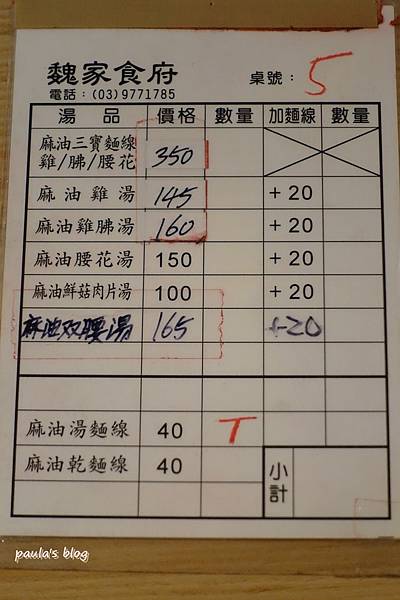 魏家食府
電話：(03)9771785
桌號：5
湯品 價格 數量 加麵線 數量
麻油三寶麵線
雞/胇/腰花 350
麻油雞湯 145 +20
麻油雞胇湯 160 +20
麻油腰花湯 150 +20
麻油鮮菇肉片湯 100 +20
麻油双腰湯 165 +20
麻油湯麵線 40 T
麻油乾麵線 40
小計
paula's blog